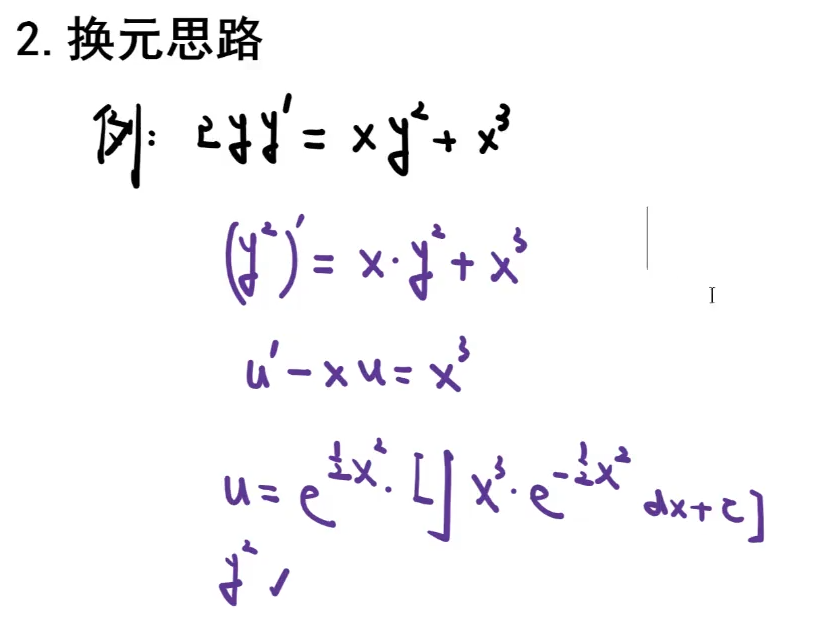 2. 换元思路
例: 2yy' = xy² + x³
(y²)' = x·y² + x³
u' - xu = x³
u = e^{½x²}·[∫ x³·e^{-½x²} dx + C]
y² ✓